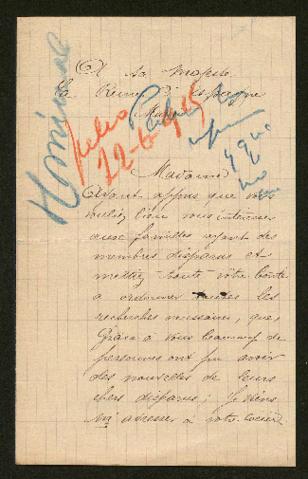 A sa Majesté
La Reine d'Espagne
Madrid
Nominal
Julio
22-6-915
Madame
Ayant appris que vous
vouliez bien vous intéresser
aux familles ayant des
membres disparus et
mettiez toute votre bonté
à ordonner toutes les
recherches nécessaires, que,
Grâce à Vous beaucoup de
personnes ont pu avoir
des nouvelles de leurs
chers disparus; Je viens
m'adresser à votre